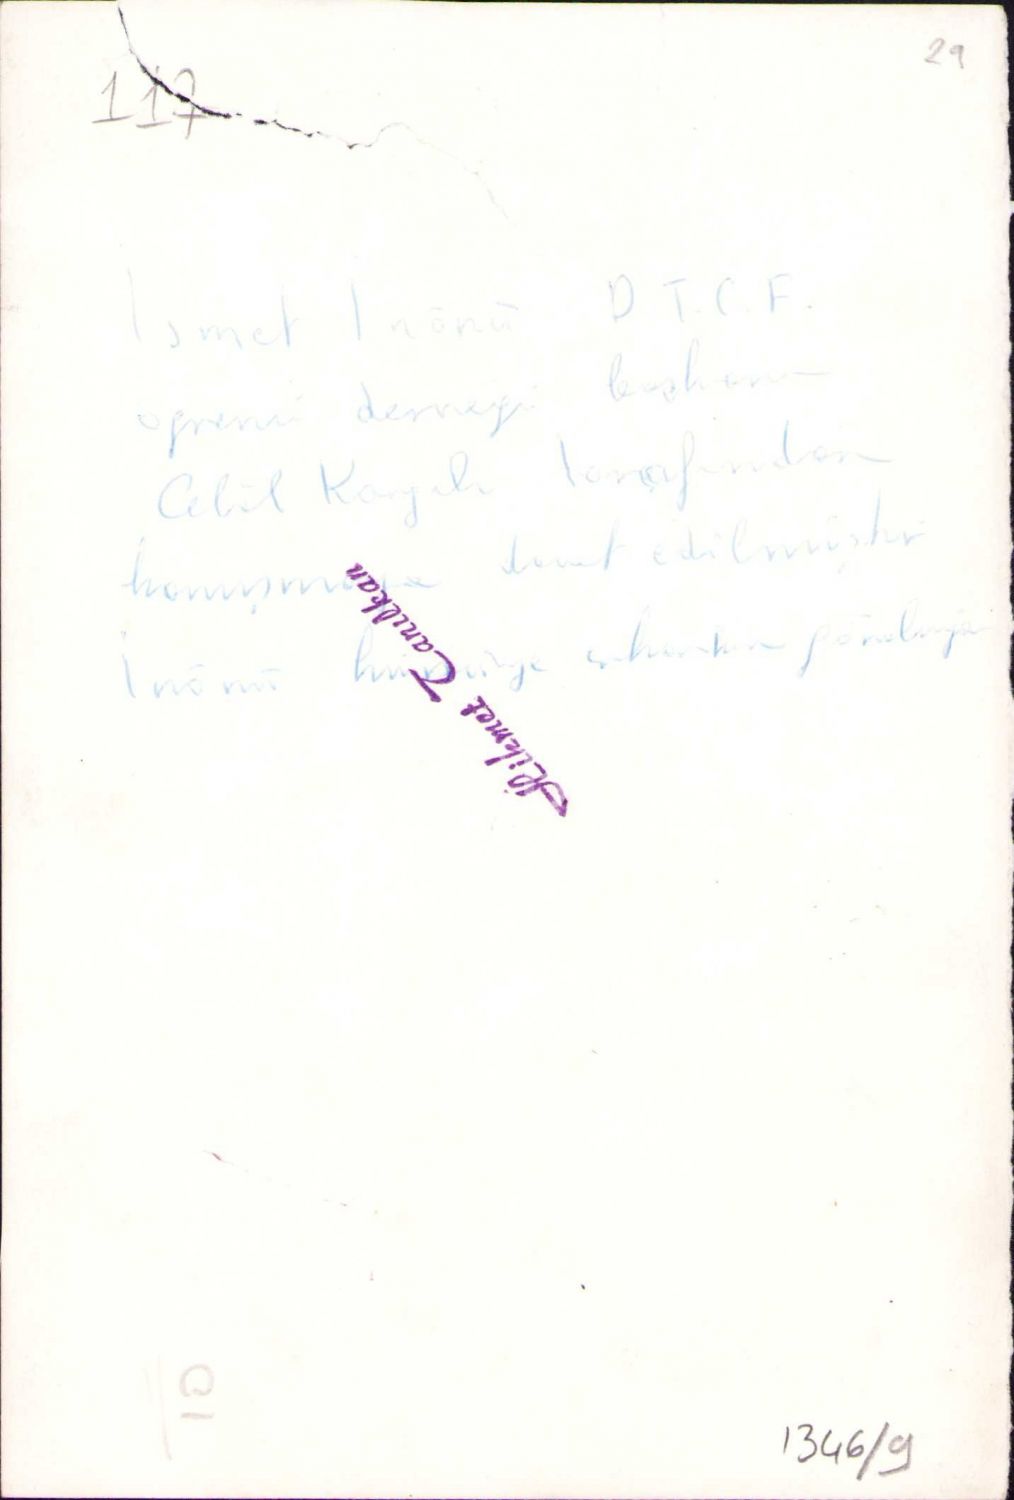 29
117
İsmet İnönü D.T.C.F.
öğrenci derneği başkanı
Celil tarafından
konuşmaya davet edilmiştir
İnönü kürsüye çıkarken görülüyor
Hikmet Tanılkan
1346/9